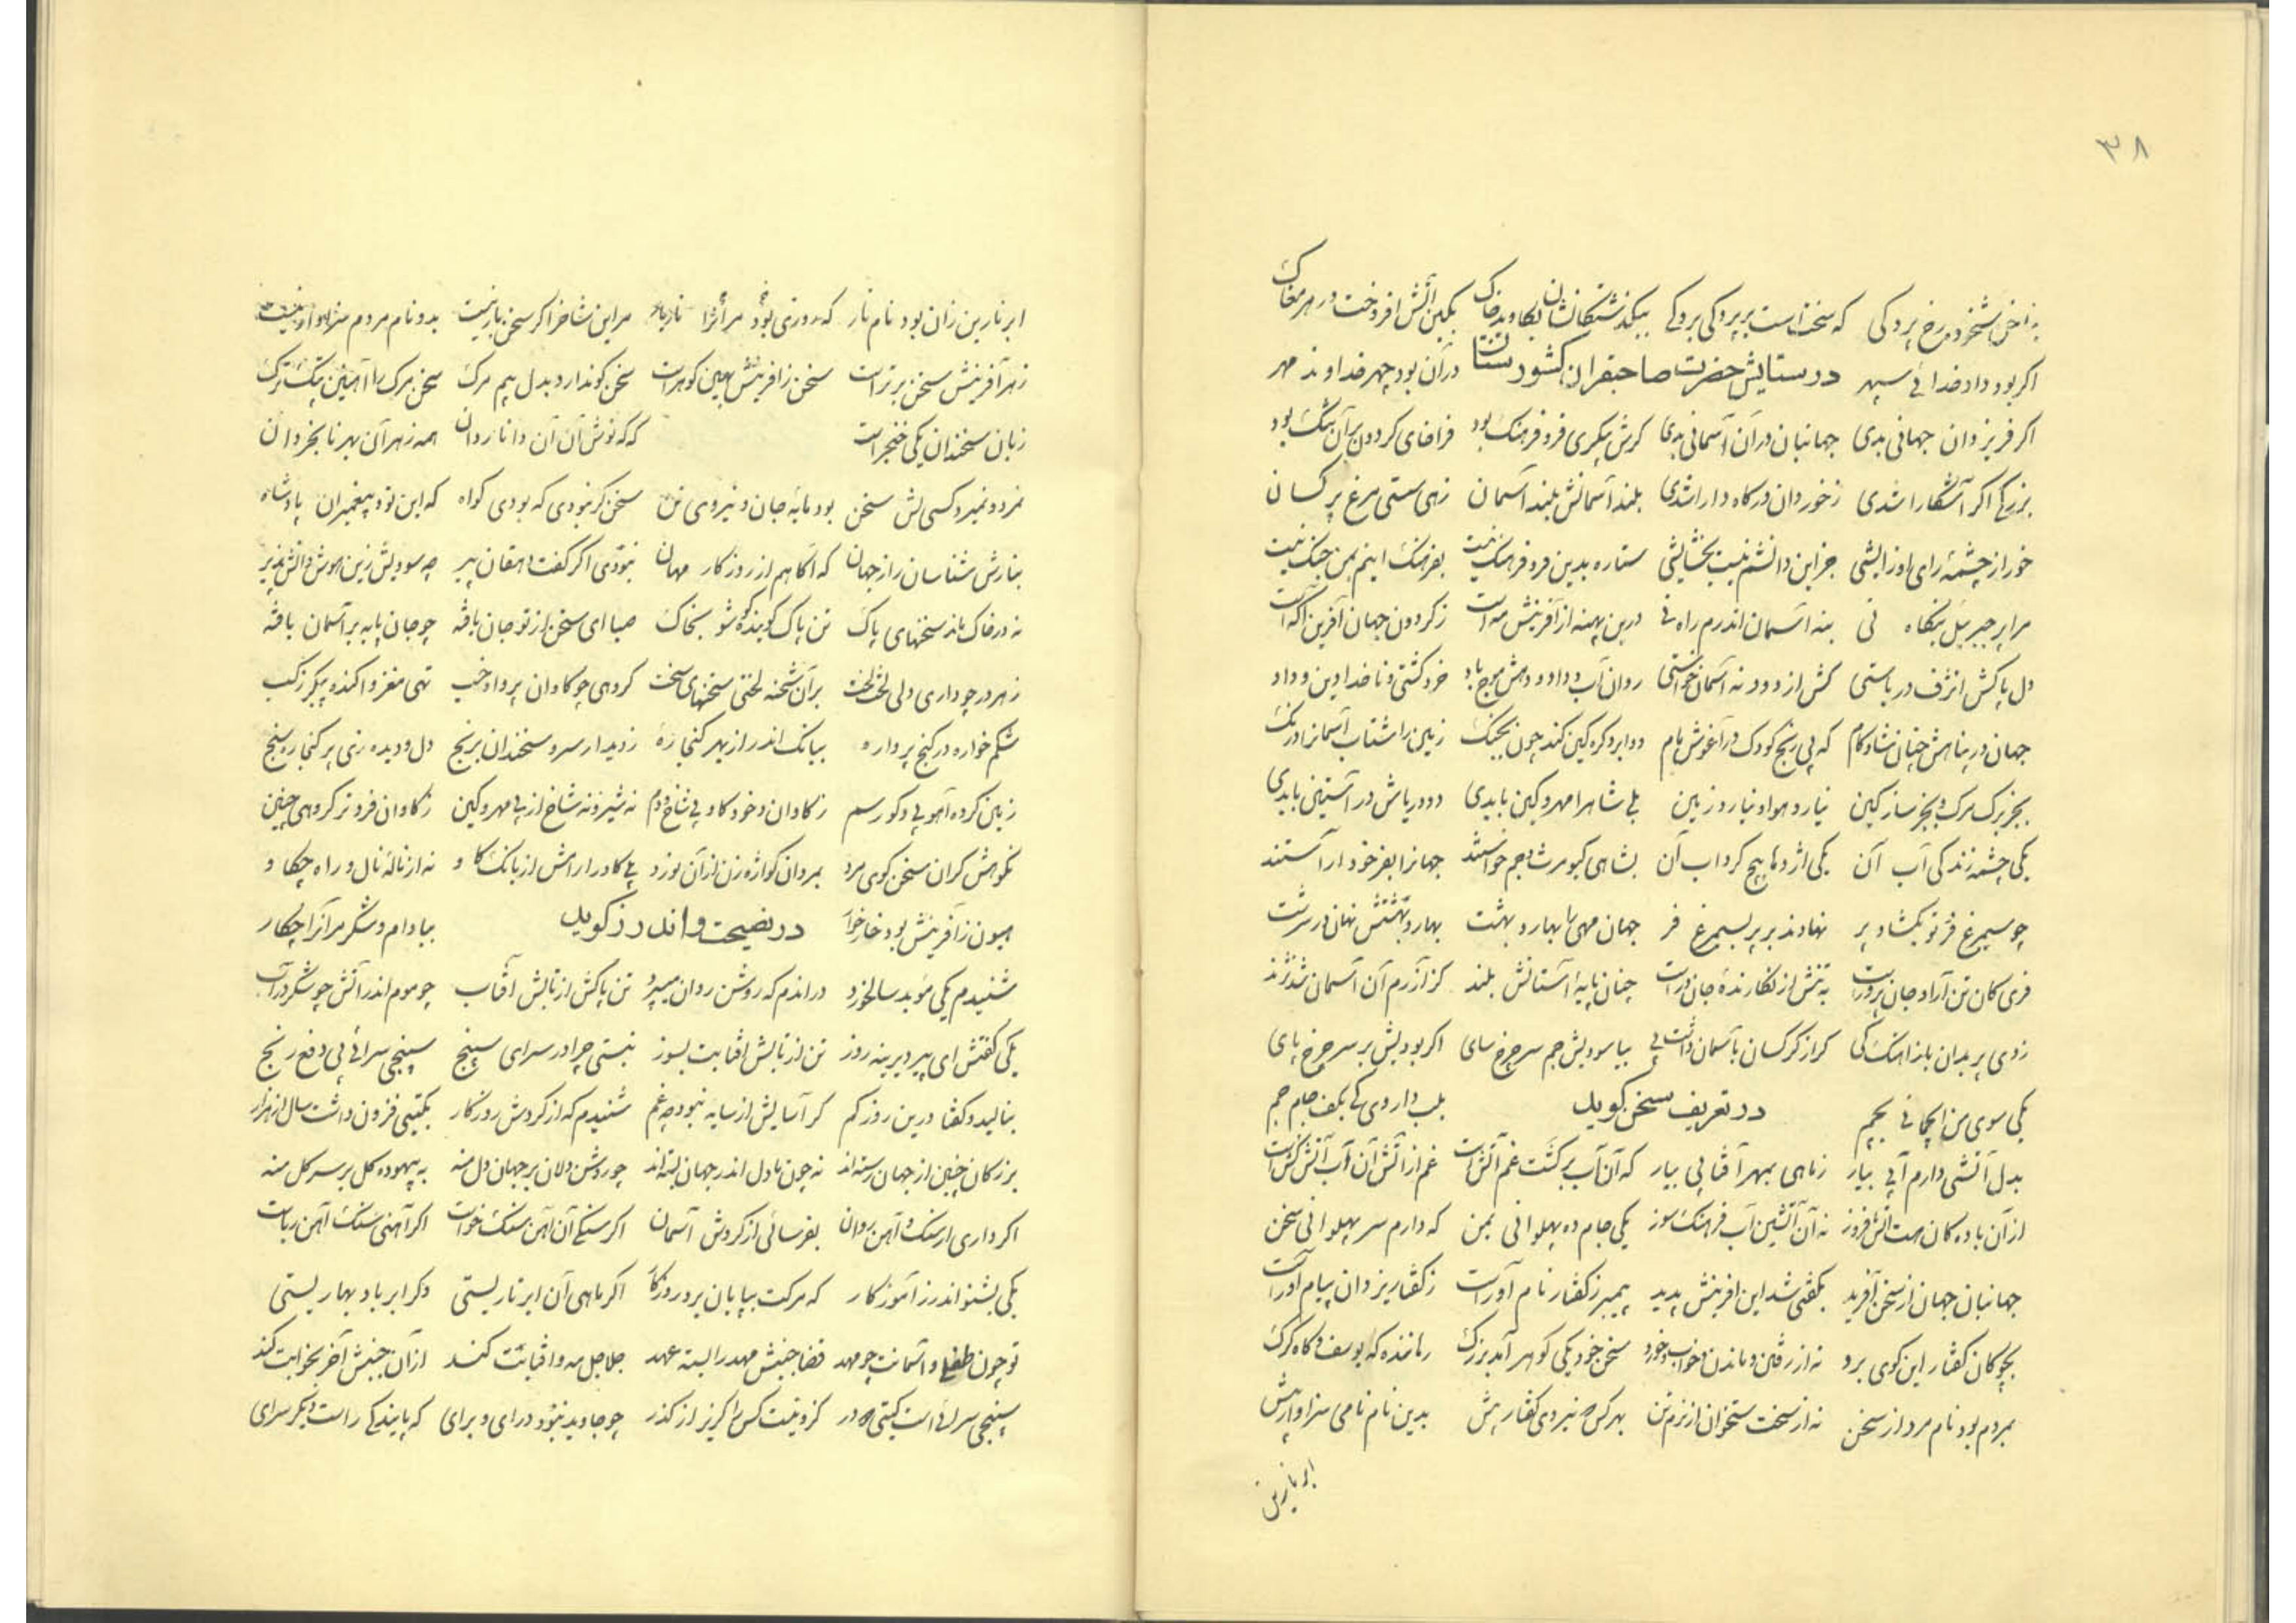 ۳۸
که سخت است بر پردگی بردگی
اگر بود داد خدائی سپهر در ستایش حضرت صاحبقران کشورستان در آن بود چهر خداوند مهر
اگر فر یزدان جهانی بدی جهانبان در آن آسمانی بدی گرش پیکری فر و فرهنگ بود فراخای گردون بر آن تنگ بود
بزرگی اگر آشکارا شدی ز خوردان درگاه دارا شدی بلند آسمانش بلند آسمان
خور از چشمهٔ رای او زایشی جز این دانشم نیست بخشایشی ستاره بدین فر و فرهنگ نیست بفرهنگ اینم بمن جنگ نیست
مرا پر جبریل بنگاه نی بنه آسمان اندرم راه نی درین پهنه از آفرینش مه است ز گردون جهان آفرین آگه است
دل پاکش ژرف دریاستی کش از دود نه آسمان خواستی روان آب و داد و دهش موج باد خرد کشتی و ناخدا دین و داد
جهان در پناهش چنان شادکام که بی رنج کودک در آغوش مام دو ابرو گره کین کند چون بجنگ زمین را شتاب آسمانرا درنگ
بجز برگ مرگ و بجز ساز کین نیارد هوا و نیارد زمین بلی شاهرا مهر و کین بایدی دو دریاش در آستین بایدی
یکی چشمه زندگی آب آن یکی اژدها پیچ گرداب آن بشاهی کیومرث و جم خواستند جهانرا بفر خود آراستند
چو سیمرغ فر تو بگشاد پر نهادند بر پر سیمرغ فر جهان مهی را بهار و بهشت بهار و بهشتش نهان در سرشت
فری کان تن آراد جان پرورست به تنش از نگارندهٔ جان درست چنان پایهٔ آستانش بلند کز آزرم آن آسمان شد نژند
گر از کرکسان بآسمان داشت پی بیاسودیش جم سر چرخ سای اگر بودیش بر سر چرخ پای
یکی سوی من بچم در تعریف سخن گوید بلب داروی کی بکف جام جم
بدل آتشی دارم آبی بیار ز ماهی بمهر آفتابی بیار که آن آب برکشت غم آتش است غم از آتش آن آب آتش کش است
از آن باده کان هست آتش فروز نه آن آتشین آب فرهنگ سوز یکی جام ده پهلوانی بمن که دارم سر پهلوانی سخن
جهانبان جهان از سخن آفرید بگفتی شد این آفرینش پدید پیمبر ز گفتار نام آورست ز گفتار یزدان پیام آورست
بچوگان گفتار این گوی برد نه از رفتن و ماندن و خواب و خورد سخن خود یکی گوهر آمد بزرگ رماننده گه یوسف و گاه گرگ
بمردم بود نام مرد از سخن نه از سخت ستخوان از نرم تن بهر کس نیروی گفتار بیش بدین نام نامی سزاوار بیش
ابر نارین
ابر نارین زان بود نام نار که روزی بود مر آنرا مر این شاخرا گر سخن بار نیست بدو نام مردم سزاوار نیست
ز هر آفرینش سخن برترست سخن ز آفرینش بهین گوهرست سخن گو ندارد بدل بیم مرگ سخن مرگ را آهنین پتک و ترگ
زبان سخندان یکی خنجرست که گه نوش آن آن دانا روان همه زهر آن بهر نابخردان
نمرد و نمیرد کسی کش سخن بود مایهٔ جان و نیروی تن سخن گر نبودی که بودی گواه که این تو و پیغمبران پادشاه
بنازش شناسان راز جهان که آگاهم از روزگار مهان نبودی اگر گفت دهقان پیر چه سودیش زین هوش دانش پذیر
نه در خاک ماند سخنهای پاک تن پاک گوینده گو شو بخاک صبا ای سخن از تو جان یافته چو جان پایه بر آسمان یافته
ز هر در چو داری دلی لخت لخت بر آن شحنه لختی سخنهای سخت گروهی چو گاوان پروا و خسب تهی مغز و آکنده پیکر ز کسب
شکم خواره در کنج پرواره ببانگ اندر از بهر کنجاره ز دیدار سرو سخندان برنج دل و دیده زی پر کنجاره سنج
زمین کرده آهوبی و گور سم ز گاوان و خود گاو بی شاخ و دم نه شیر و نه شاخ از پی مهر و کین ز گاوان فروتر گروهی چنین
نکوهش گران سخن گوی مرد بمردان گواژه زن از آن نورد بلی گاو را رامش از بانگ گاو نه از نالهٔ نال و راه چکاو
هیون ز آفرینش بود خارخوار در نصیحت و اندرز گوید ببادام و شکر مر آنرا چکار
شنیدم یکی موبد سالخورد در آندم که روشن روان میسپرد تن پاکش از تابش آفتاب چو موم اندر آتش چو شکر در آب
یکی گفتش ای پیر دیرینه روز تن از تابش آفتابت بسوز نبستی چرا در سرای سپنج سپنجی سرائی پی دفع رنج
بنالید و گفتا درین روز کم گر آسایش از سایه نبود چه غم شنیدم که از گردش روزگار بگیتی فزون داشت سال از هزار
بزرگان چنین از جهان رسته‌اند نه چون ما دل اندر جهان بسته‌اند چو روشن دلان بر جهان دل منه به بیهوده گل بر سر گل منه
اگر داری از سنگ و آهن روان بفرسائی از گردش آسمان اگر سنگی آن آهن سنگ خواست اگر آهنی سنگ آهن رباست
یکی بشنو اندرز آموزگار که مرگت بپایان برد روزگار اگر ماهی آن ابر تاریستی دگر ابر باد بهاریستی
تو چون طفلی و آسمانت چو مهد قضا جنبش مهد را بسته عهد جلاجل مه و آفتابت کند از آن جنبش آخر بخوابت کند
سپنجی سرائیست گیتی دو در کزو نیست کس را گریز از گذر چو جاوید نبود درای و برای که پایندگی راست دیگر سرای